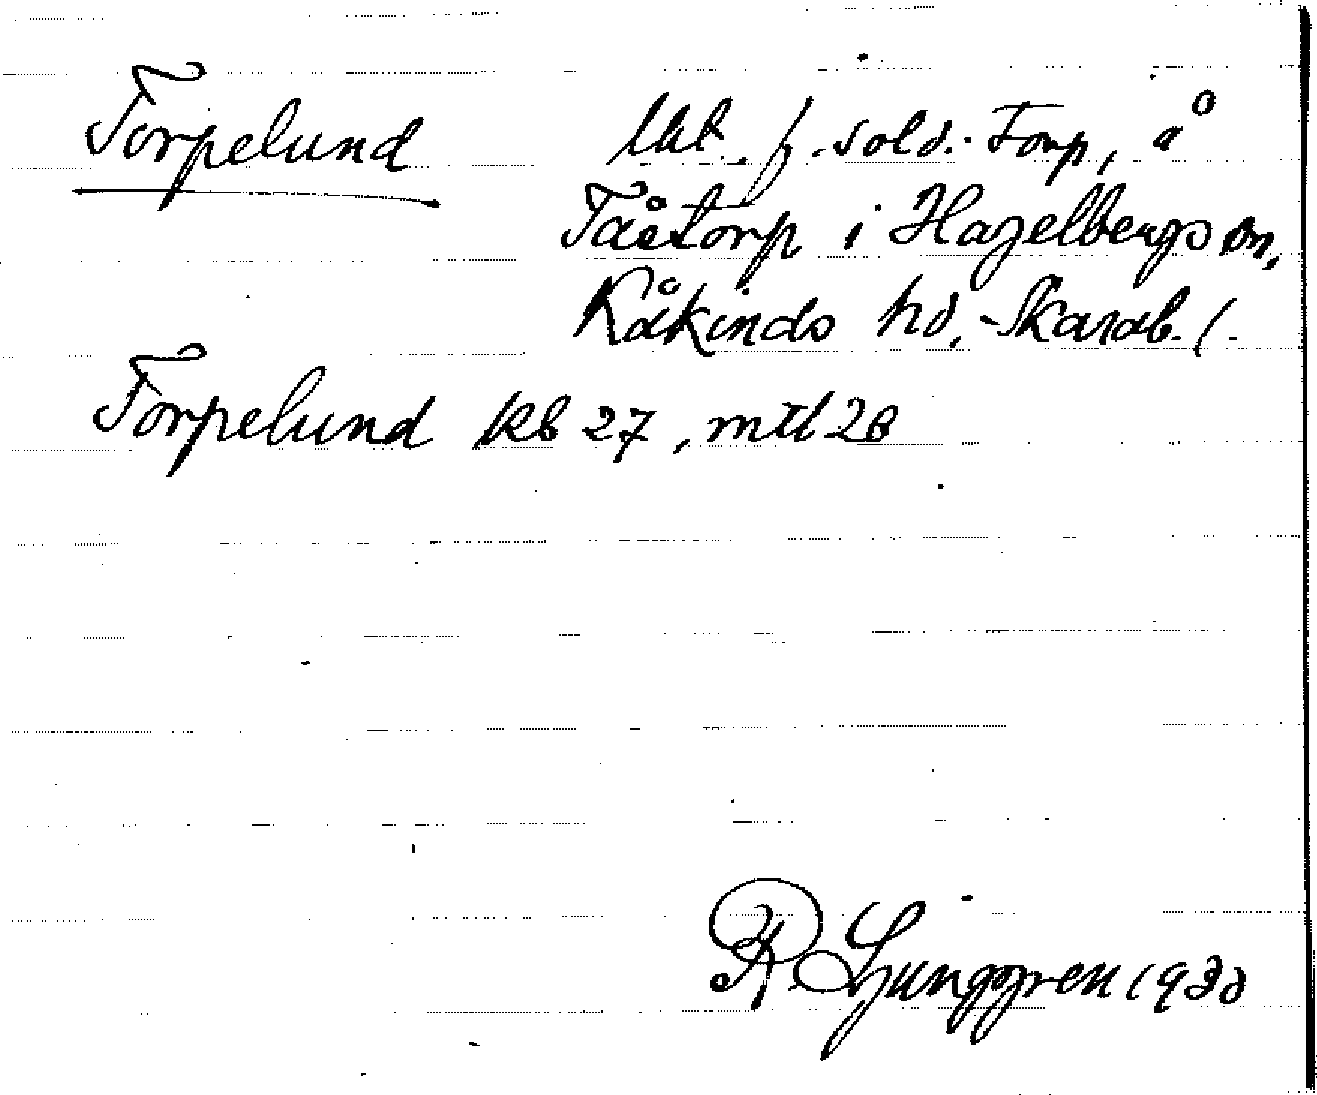 Torpelund
lht. f. sold. Torp, å
Tåstorp i Hagelbergs sn,
Kåkinds hd, Skarab. l.
Torpelund kb 27, mtl 28
R. Ljunggren 1930